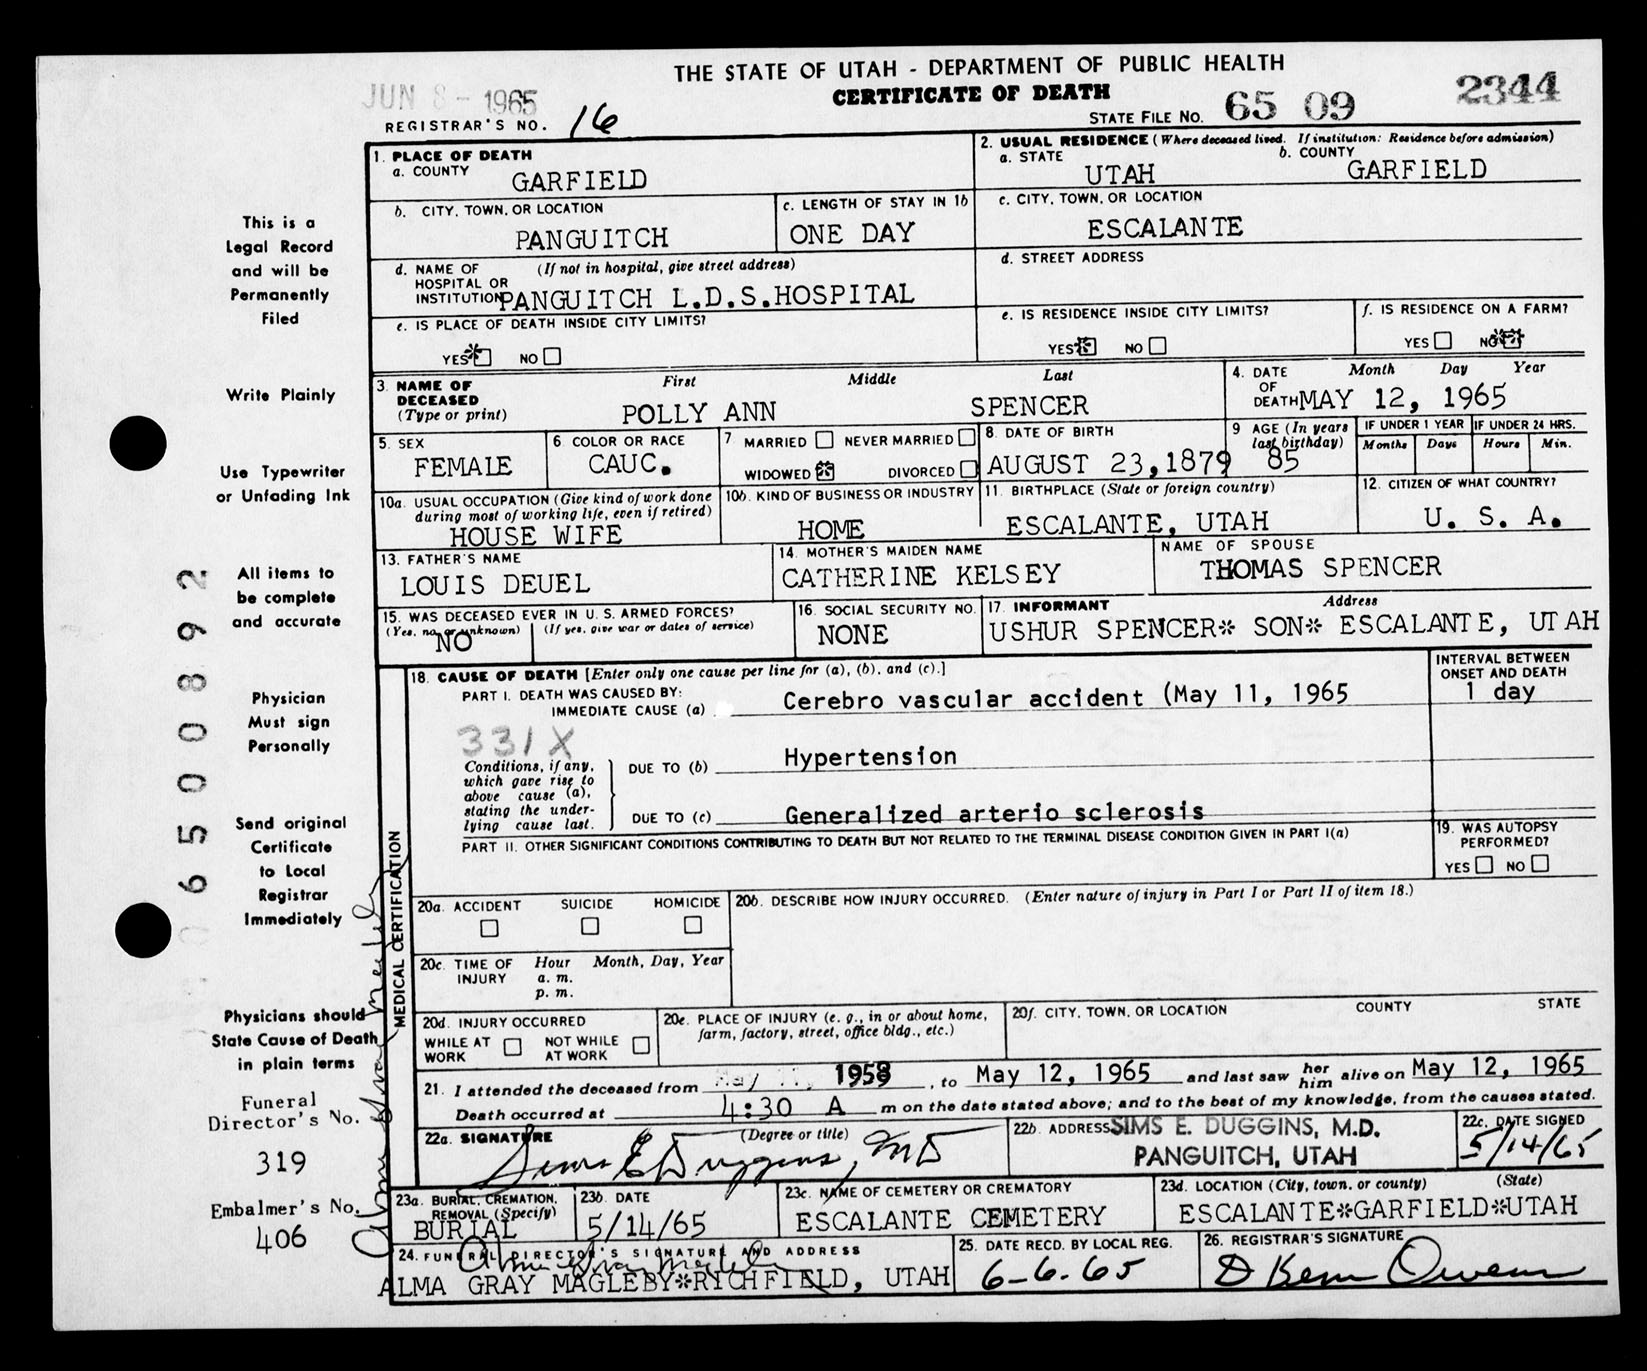 THE STATE OF UTAH - DEPARTMENT OF PUBLIC HEALTH
CERTIFICATE OF DEATH
JUN 8 - 1965
REGISTRAR'S NO. 16
STATE FILE NO. 65 09 2344
This is a
Legal Record
and will be
Permanently
Filed
Write Plainly
Use Typewriter
or Unfading Ink
All items to
be complete
and accurate
Physician
Must sign
Personally
Send original
Certificate
to Local
Registrar
Immediately
Physicians should
State Cause of Death
in plain terms
Funeral
Director's No.
319
Embalmer's No.
406
06500892
1. PLACE OF DEATH
a. COUNTY
GARFIELD
2. USUAL RESIDENCE (Where deceased lived. If institution: Residence before admission)
a. STATE
UTAH
b. COUNTY
GARFIELD
b. CITY, TOWN, OR LOCATION
PANGUITCH
c. LENGTH OF STAY IN 1b
ONE DAY
c. CITY, TOWN, OR LOCATION
ESCALANTE
d. NAME OF HOSPITAL OR INSTITUTION
(If not in hospital, give street address)
PANGUITCH L.D.S.HOSPITAL
d. STREET ADDRESS
e. IS PLACE OF DEATH INSIDE CITY LIMITS?
YES NO
e. IS RESIDENCE INSIDE CITY LIMITS?
YES NO
f. IS RESIDENCE ON A FARM?
YES NO
3. NAME OF DECEASED
(Type or print)
First Middle Last
POLLY ANN SPENCER
4. DATE OF DEATH
Month Day Year
MAY 12, 1965
5. SEX
FEMALE
6. COLOR OR RACE
CAUC.
7 MARRIED NEVER MARRIED
WIDOWED DIVORCED
8. DATE OF BIRTH
AUGUST 23,1879
9 AGE (In years last birthday)
85
IF UNDER 1 YEAR
Months Days
IF UNDER 24 HRS.
Hours Min.
10a. USUAL OCCUPATION (Give kind of work done during most of working life, even if retired)
HOUSE WIFE
10b. KIND OF BUSINESS OR INDUSTRY
HOME
11. BIRTHPLACE (State or foreign country)
ESCALANTE, UTAH
12. CITIZEN OF WHAT COUNTRY?
U. S. A.
13. FATHER'S NAME
LOUIS DEUEL
14. MOTHER'S MAIDEN NAME
CATHERINE KELSEY
NAME OF SPOUSE
THOMAS SPENCER
15. WAS DECEASED EVER IN U. S. ARMED FORCES?
(Yes, no, or unknown) (If yes, give war or dates of service)
NO
16. SOCIAL SECURITY NO.
NONE
17. INFORMANT Address
USHUR SPENCER* SON* ESCALANTE, UTAH
MEDICAL CERTIFICATION
18. CAUSE OF DEATH [Enter only one cause per line for (a), (b), and (c).]
INTERVAL BETWEEN ONSET AND DEATH
PART I. DEATH WAS CAUSED BY:
IMMEDIATE CAUSE (a) Cerebro vascular accident (May 11, 1965
1 day
331X
Conditions, if any, which gave rise to above cause (a), stating the underlying cause last.
DUE TO (b) Hypertension
DUE TO (c) Generalized arterio sclerosis
PART II. OTHER SIGNIFICANT CONDITIONS CONTRIBUTING TO DEATH BUT NOT RELATED TO THE TERMINAL DISEASE CONDITION GIVEN IN PART I(a)
19. WAS AUTOPSY PERFORMED?
YES NO
20a. ACCIDENT SUICIDE HOMICIDE
20b. DESCRIBE HOW INJURY OCCURRED. (Enter nature of injury in Part I or Part II of item 18.)
20c. TIME OF INJURY
Hour Month, Day, Year
a. m.
p. m.
20d. INJURY OCCURRED
WHILE AT WORK NOT WHILE AT WORK
20e. PLACE OF INJURY (e. g., in or about home, farm, factory, street, office bldg., etc.)
20f. CITY, TOWN, OR LOCATION COUNTY STATE
21. I attended the deceased from May 11, 1958, to May 12, 1965 and last saw her him alive on May 12, 1965
Death occurred at 4:30 A m on the date stated above; and to the best of my knowledge, from the causes stated.
22a. SIGNATURE (Degree or title)
Sims E Duggins, MD
22b. ADDRESS
SIMS E. DUGGINS, M.D.
PANGUITCH, UTAH
22c. DATE SIGNED
5/14/65
23a. BURIAL, CREMATION, REMOVAL (Specify)
BURIAL
23b. DATE
5/14/65
23c. NAME OF CEMETERY OR CREMATORY
ESCALANTE CEMETERY
23d. LOCATION (City, town, or county) (State)
ESCALANTE*GARFIELD*UTAH
24. FUNERAL DIRECTOR'S SIGNATURE AND ADDRESS
Alma Gray Magleby
ALMA GRAY MAGLEBY*RICHFIELD, UTAH
25. DATE RECD. BY LOCAL REG.
6-6-65
26. REGISTRAR'S SIGNATURE
D Kem Owens
Alma Gray Magleby